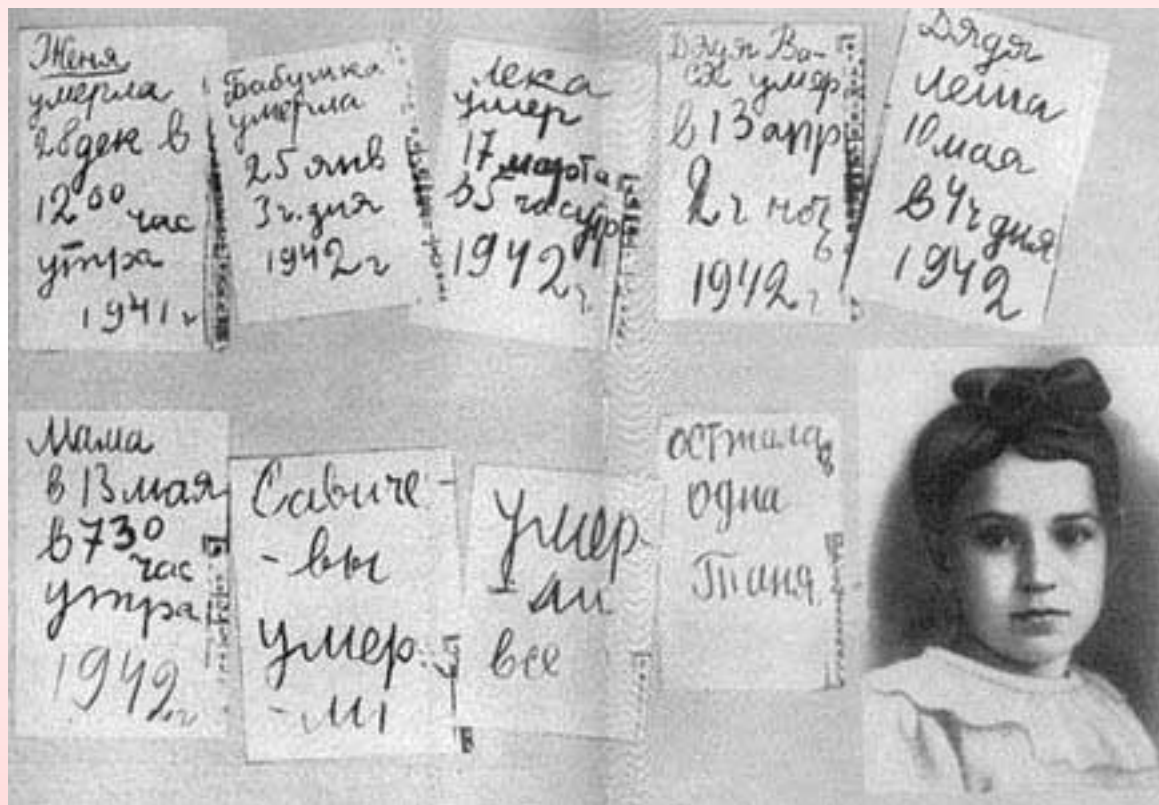 Женя
умерла
28 дек в
12 00 час
утра
1941 г
Бабушка
умерла
25 янв
3 ч. дня
1942 г
Лека
умер
17 марта
в 5 час утр
1942 г.
Дядя Ва-
ся умер
в 13 апр
2 ч ноч
ь
1942 г
Дядя
Леша
10 мая
в 4 ч дня
1942
Мама
в 13 мая
в 730
час
утра
1942 г
Савиче-
-вы
умер
-ли
умер-
-ли
все
осталась
одна
Таня